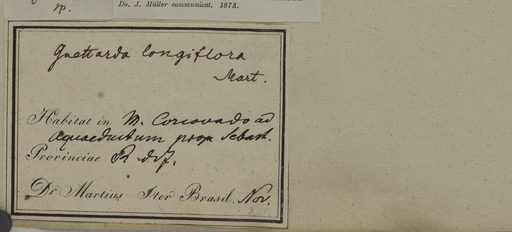 sp.
Do. J. Müller communicat. 1873.
Guettarda longiflora
Mart.
Habitat in M. Corcovado ad
aquaeductum prope Sebast.
Provinciae
Dr Martius Iter Brasil. Nov.